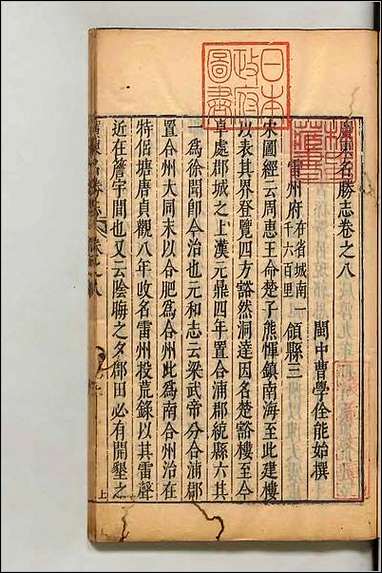 廣東名勝志卷之八
閩中曹學佺能始撰
雷州府 在省城南一千六百里 領縣三
宋圖經云周惠王命楚子熊惲鎮南海至此建樓
以表其界登覽四方豁然洞達因名楚豁樓至今
卓處郡城之上漢元鼎四年置合浦郡統縣六其
一為徐聞即今治也元和志云梁武帝分合浦郡
置合州大同末以合肥為合州此為南合州治在
特侶塘唐貞觀八年收名雷州投荒錄以其雷聲
近在簷宇間也又云陰晦之夕郡田必有開墾之
日本
政府
圖書
上